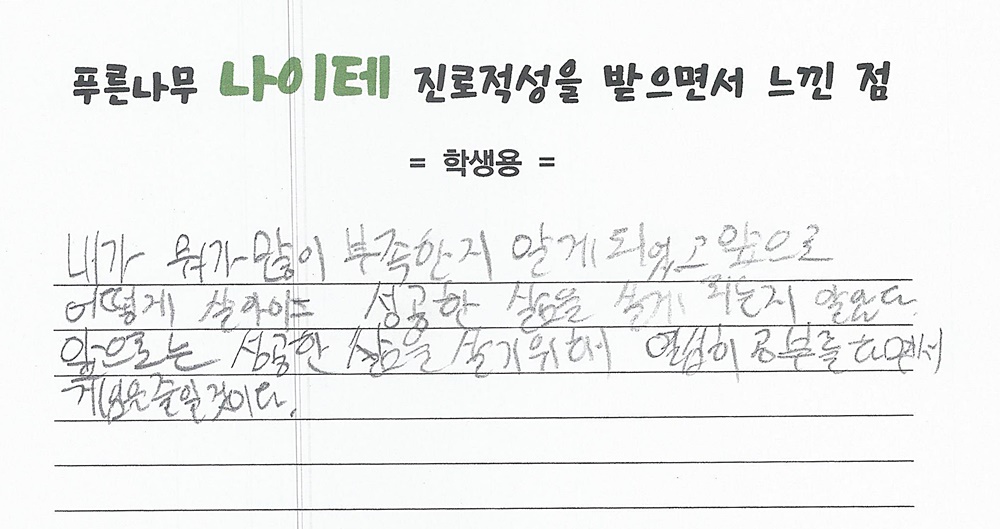 푸른나무 나이테 진로적성을 받으면서 느낀 점
= 학생용 =
내가 뭐가 많이 부족한지 알게 되었고 앞으로
어떻게 살아야 성공한 삶을 살게 되는지 알았다.
앞으로는 성공한 삶을 살기위해 열심히 공부를 하면서
게임은 줄일 것이다.